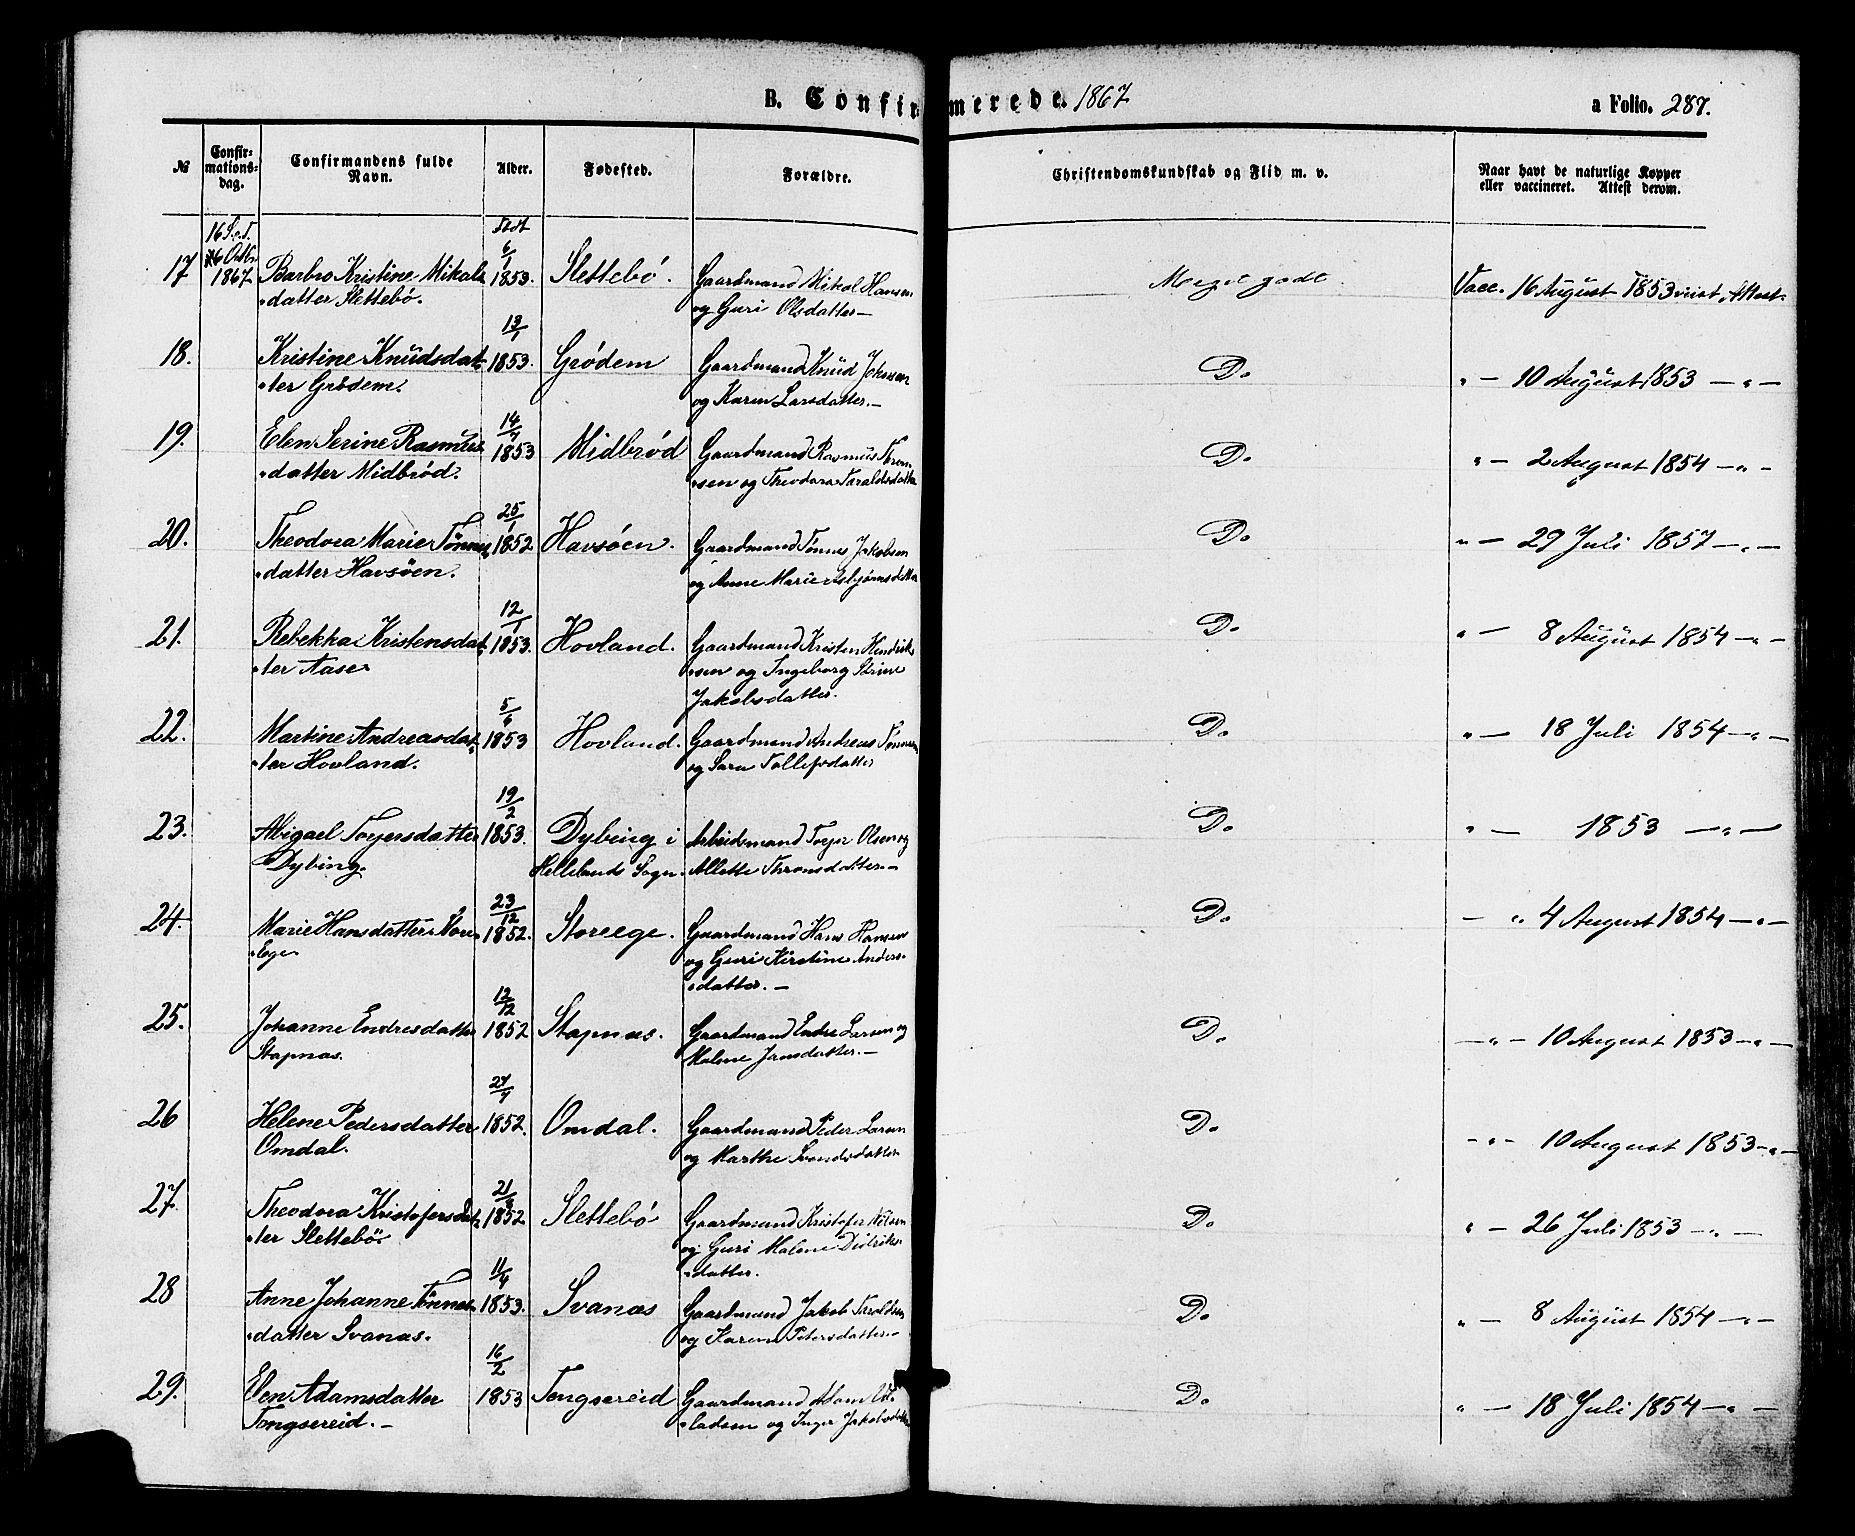 B. Confirmerede. 1867
a Folio. 287.
№ Confirmationsdag. Confirmandens fulde Navn. Alder. Fødested. Forældre. Christendomskundskab og Flid m. v. Naar havt de naturlige Kopper eller vaccineret. Attest derom.
16 S.e.T.
6 Octbr
1867
17 Barbro Kristine Mikals 6/1 1853. Slettebö. Gaardmand Mikal Hansen Meget godt. Vacc. 16 August 1853 viist Attest
datter Slettebö. og Guri Olsdatter —
18. Kristine Knudsdat 13/1 1853. Grödem Gaardmand Knud Johnsen Do " — 10 August 1853 — " —
ter Grödem. og Karen Larsdatter. —
19. Elen Serine Rasmus 14/7 1853 Midbröd Gaardmand Rasmus Do " — 2 August 1854 — " —
datter Midbröd. sen og Theodora Taraldsdatter
20. Theodora Marie Tönnes 25/1 1852 Havsöen. Gaardmand Tönnes Jakobsen Do " — 29 Juli 1857 — " —
datter Havsöen. og Anne Marie Asbjörnsdatter
21. Rebekka Kristensdat 12/1 1853. Hovland. Gaardmand Kristen Hendrik Do " — 8 August 1854 — " —
ter Aase sen og Ingeborg Serine
Jakobsdatter.
22. Martine Andreasdat 5/6 1853 Hovland. Gaardmand Andreas Tönnesen Do " — 18 Juli 1854 — " —
ter Hovland. og Sara Tollefsdatter
23. Abigael Torgersdatter 19/2 1853. Dybing i Arbeidsmand Torger Olsen og Do " — 1853 — " —
Dybing. Hellelands Sogn. Allette Thronsdatter. —
24. Marie Hansdatter Store 23/12 1852. Storeege. Gaardmand Hans Hansen Do — " 4 August 1854 — " —
Ege og Guri Kirstine Anders
datter. —
25. Johanne Endresdatter 12/12 1852 Stapnæs. Gaardmand Endre Larsen og Do — " — 10 August 1853 — " —
Stapnæs. Malene Jansdatter. —
26 Helene Pedersdatter 1852. Omdal. Gaardmand Peder Larsen Do — " — 10 August 1853 — " —
Omdal. og Marthe Svendsdatter
27. Theodora Kristofersdat 1852 Slettebö Gaardmand Kristofer Nilsen Do " — 26 Juli 1853 — " —
ter Slettebö og Guri Malene Didriks
datter.
28 Anne Johanne Tönnes 11/4 1853. Svanæs Gaardmand Jakob Taraldsen Do " — 8 August 1854 — " —
datter Svanæs. og Karen Petersdatter. —
29. Elen Adamsdatter 16/2 1853 Tengsereid Gaardmand Adam Do " — 18 Juli 1854 — " —
Tengsereid. — ladsen og Inger Jakobsdatter